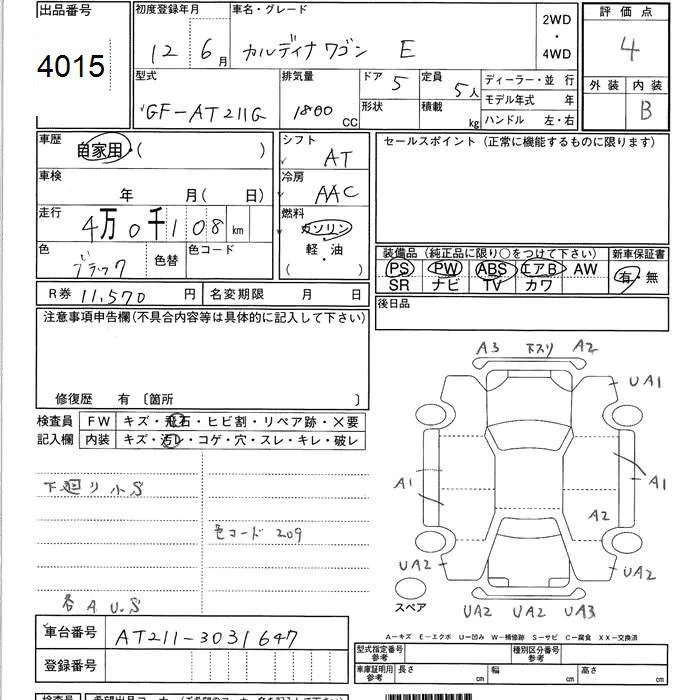 出品番号
4015
初度登録年月
12年 6月
車名・グレード
カルディナ ワゴン E
2WD
・
4WD
評価点
4
型式
GF-AT211G
排気量
1800 CC
ドア 5
定員 5人
形状
積載 kg
ディーラー・並行
モデル年式 年
ハンドル 左・右
外装 内装
B
車歴
自家用・( )
車検
年 月( 日)
走行
4万0千108 km
色
ブラック
色替
色コード
シフト
AT
冷房
AAC
燃料
ガソリン
軽・油
( )
セールスポイント (正常に機能するものに限ります)
装備品 (純正品に限り○をつけて下さい)
新車保証書
PS PW ABS エアB AW
SR ナビ TV カワ
有・無
後日品
R券 11,570 円
名変期限 月 日
注意事項申告欄(不具合内容等は具体的に記入して下さい)
修復歴 有 〔箇所 〕
検査員
記入欄
FW キズ・飛石・ヒビ割・リペア跡・X要
内装 キズ・汚レ・コゲ・穴・スレ・キレ・破レ
下廻り小S
色コード 209
各A U.S
A3 下スリ A2
UA1
A1
A1
A2
UA2
UA2
UA2 UA2 UA3
スペア
A―キズ E―エクボ U―凹み W―補修跡 S―サビ C―腐食 XX―交換済
車台番号
AT211-3031647
登録番号
型式指定番号
参考
種別区分番号
参考
車庫証明用
参考
長さ cm
幅 cm
高さ cm
検査員